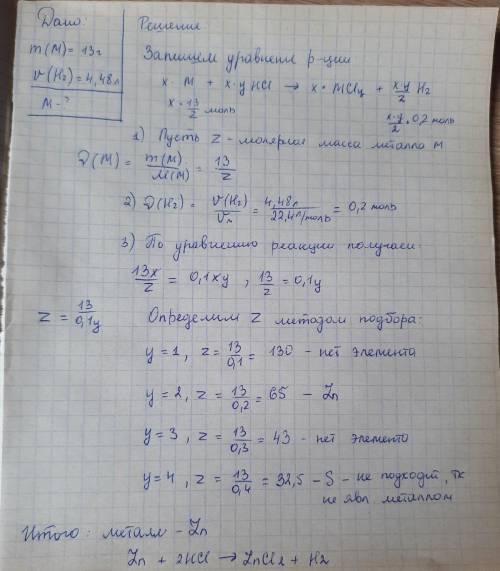 Дано
Решение
m(M) = 13г
V(H₂) = 4,48л
M - ?
Запишем уравнение р-ции
x · M + x·y HCl → x · MCly + x·y/2 H₂
x = 13/z моль
x·y/2 = 0,2 моль
1) Пусть z - молярная масса металла M
ν(M) = m(M)/M(M) = 13/z
2) ν(H₂) = V(H₂)/Vм = 4,48л/22,4л/моль = 0,2 моль
3) По уравнению реакции получаем:
13x/z = 0,1xy , 13/z = 0,1y
z = 13/0,1y
Определим z методом подбора:
y = 1, z = 13/0,1 = 130 - нет элемента
y = 2, z = 13/0,2 = 65 - Zn
y = 3, z = 13/0,3 = 43 - нет элемента
y = 4, z = 13/0,4 = 32,5 - S - не подходит, тк
не явл. металлом
Итого: металл - Zn
Zn + 2HCl → ZnCl₂ + H₂